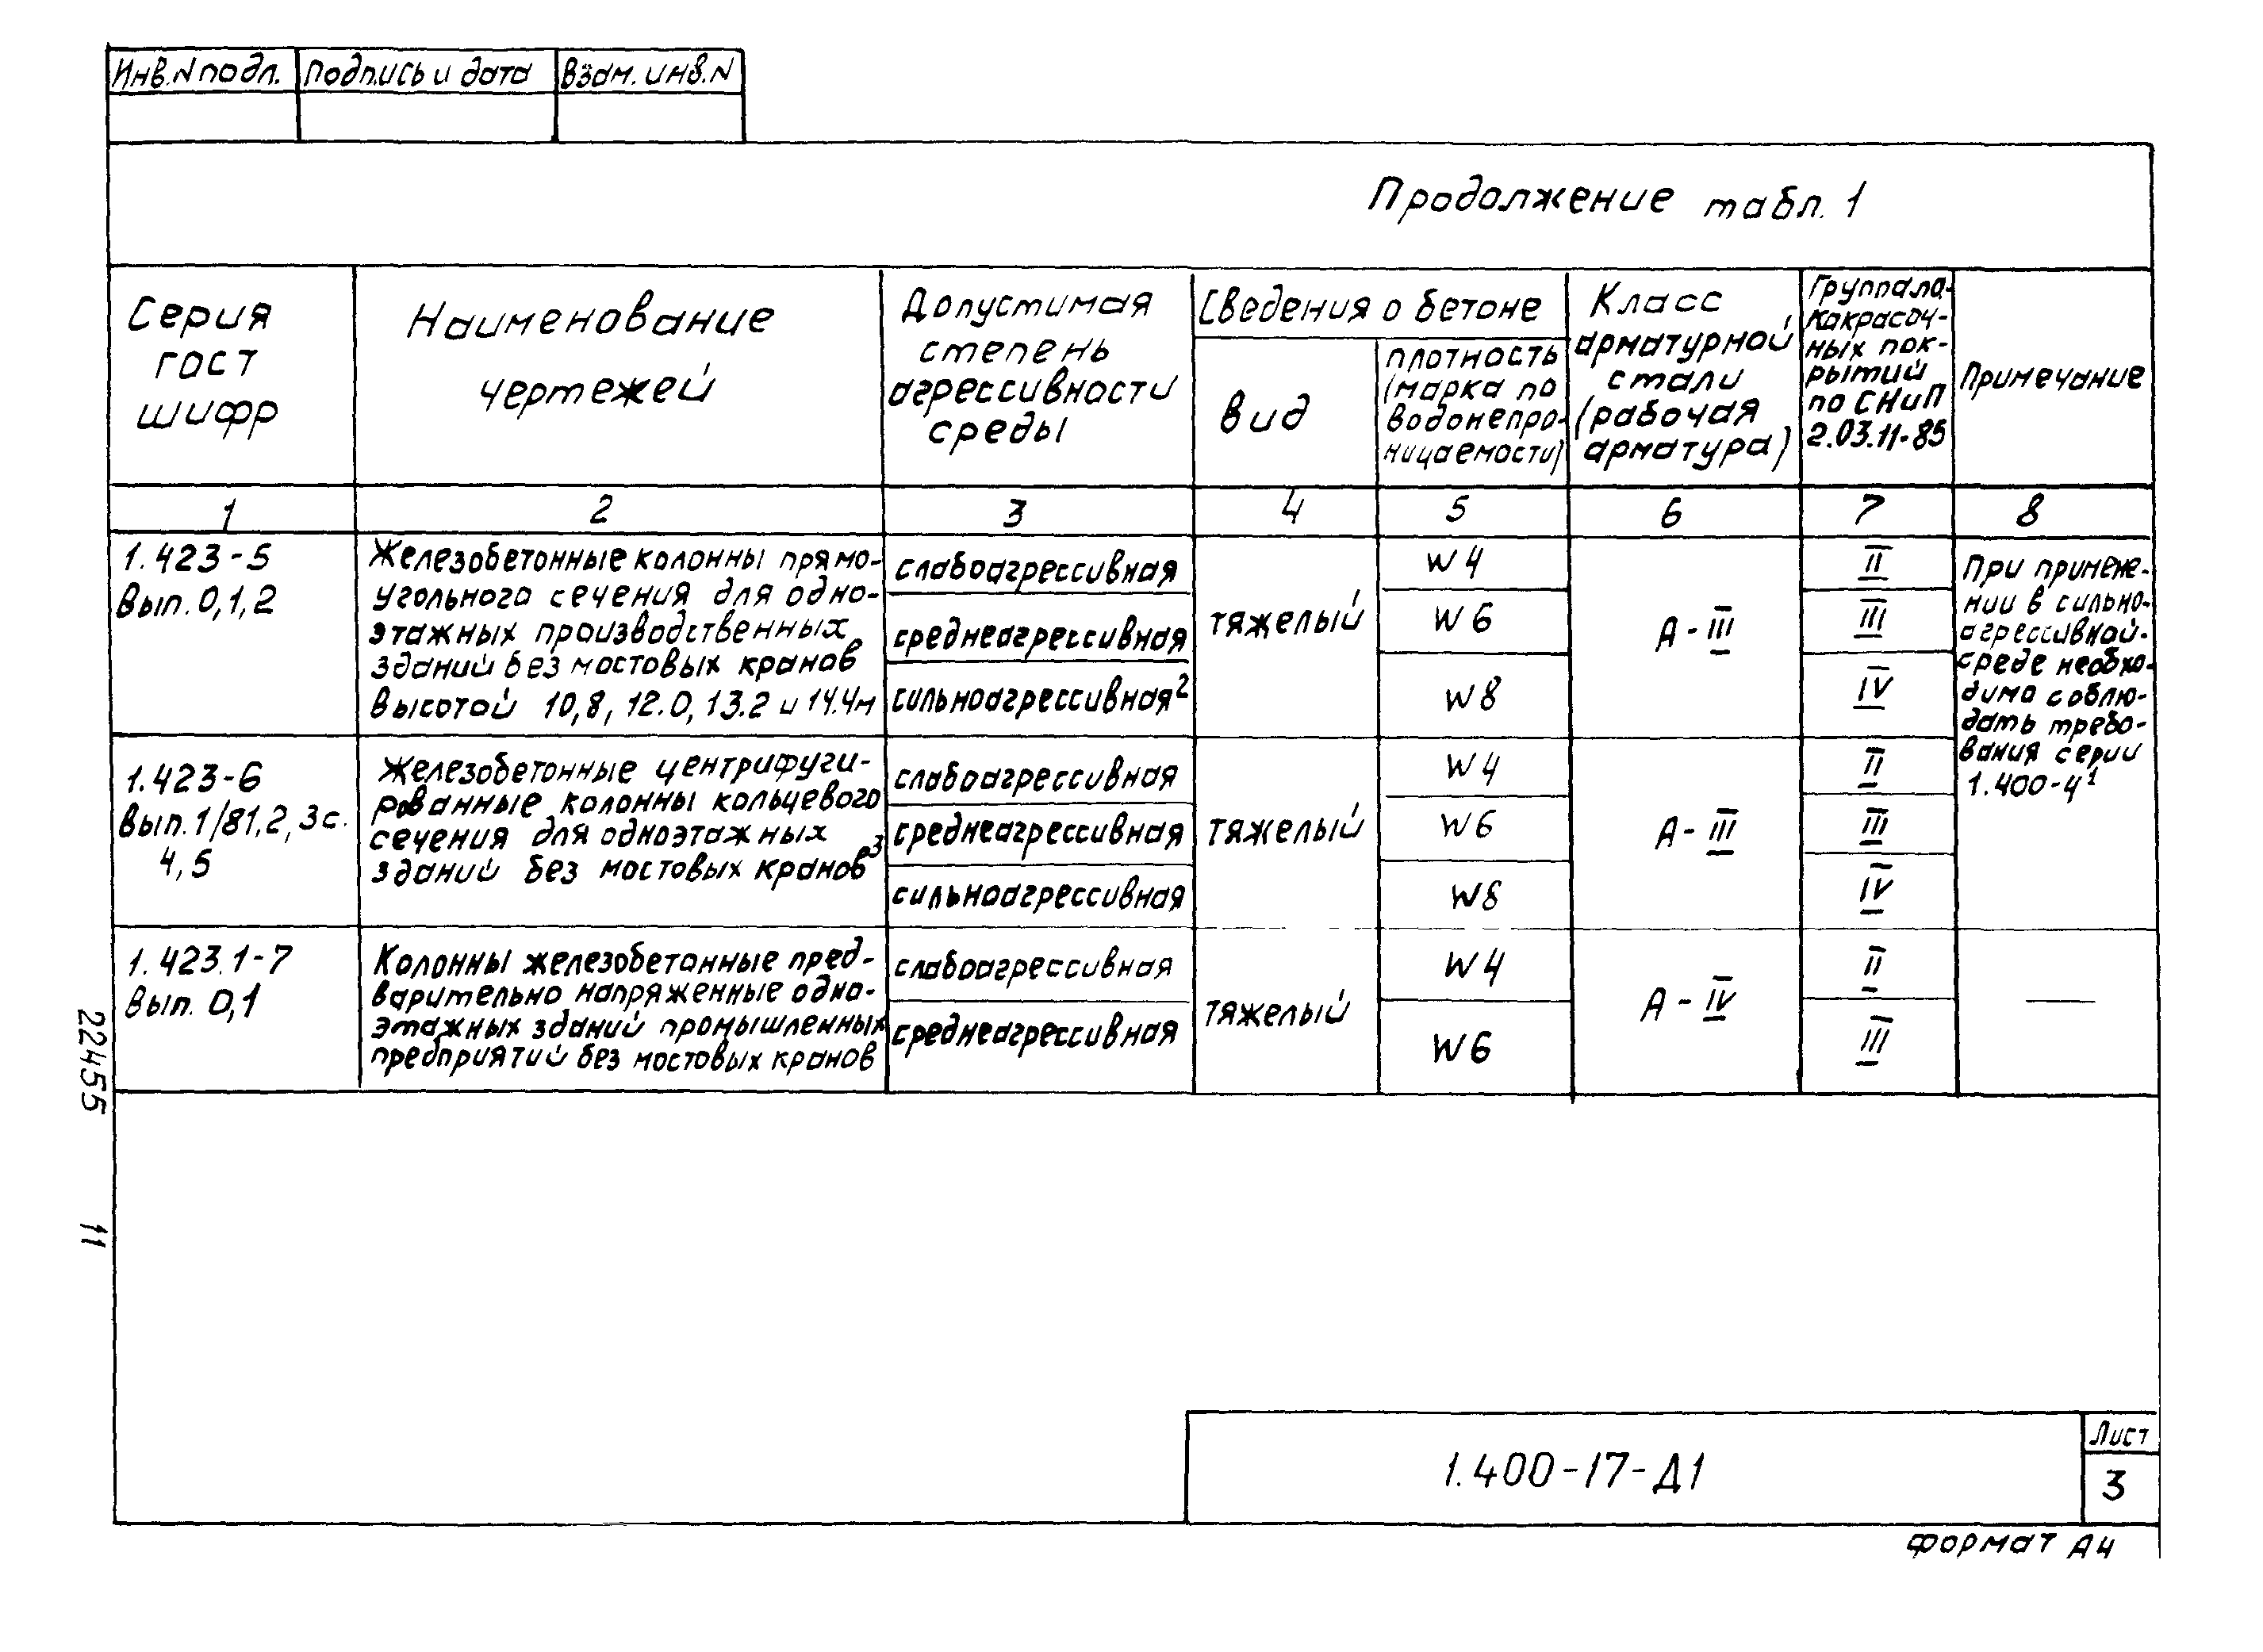 Инв.N подл. Подпись и дата Взам. инв.N
Продолжение табл. 1
Серия
ГОСТ
шифр
Наименование
чертежей
Допустимая
степень
агрессивности
среды
Сведения о бетоне
вид
плотность
(марка по
водонепро-
ницаемости)
Класс
арматурной
стали
(рабочая
арматура)
Группа ла-
кокрасоч-
ных пок-
рытий
по СНиП
2.03.11-85
Примечание
1 2 3 4 5 6 7 8
1.423-5
Вып. 0,1,2
Железобетонные колонны прямо-
угольного сечения для одно-
этажных производственных
зданий без мостовых кранов
высотой 10,8, 12.0, 13.2 и 14.4м
слабоагрессивная
среднеагрессивная
сильноагрессивная²
тяжелый
W4
W6
W8
А-III
II
III
IV
При примене-
нии в сильно-
агрессивной-
среде необхо-
димо соблю-
дать требо-
вания серии
1.400-4¹
1.423-6
Вып. 1/81, 2, 3с.
4, 5
Железобетонные центрифуги-
рованные колонны кольцевого
сечения для одноэтажных
зданий без мостовых кранов³
слабоагрессивная
среднеагрессивная
сильноагрессивная
тяжелый
W4
W6
W8
А-III
II
III
IV
1.423.1-7
Вып. 0,1
Колонны железобетонные пред-
варительно напряженные одно-
этажных зданий промышленных
предприятий без мостовых кранов
слабоагрессивная
среднеагрессивная
тяжелый
W4
W6
А-IV
II
III
—
22455 11
1.400-17-Д1
Лист
3
формат А4